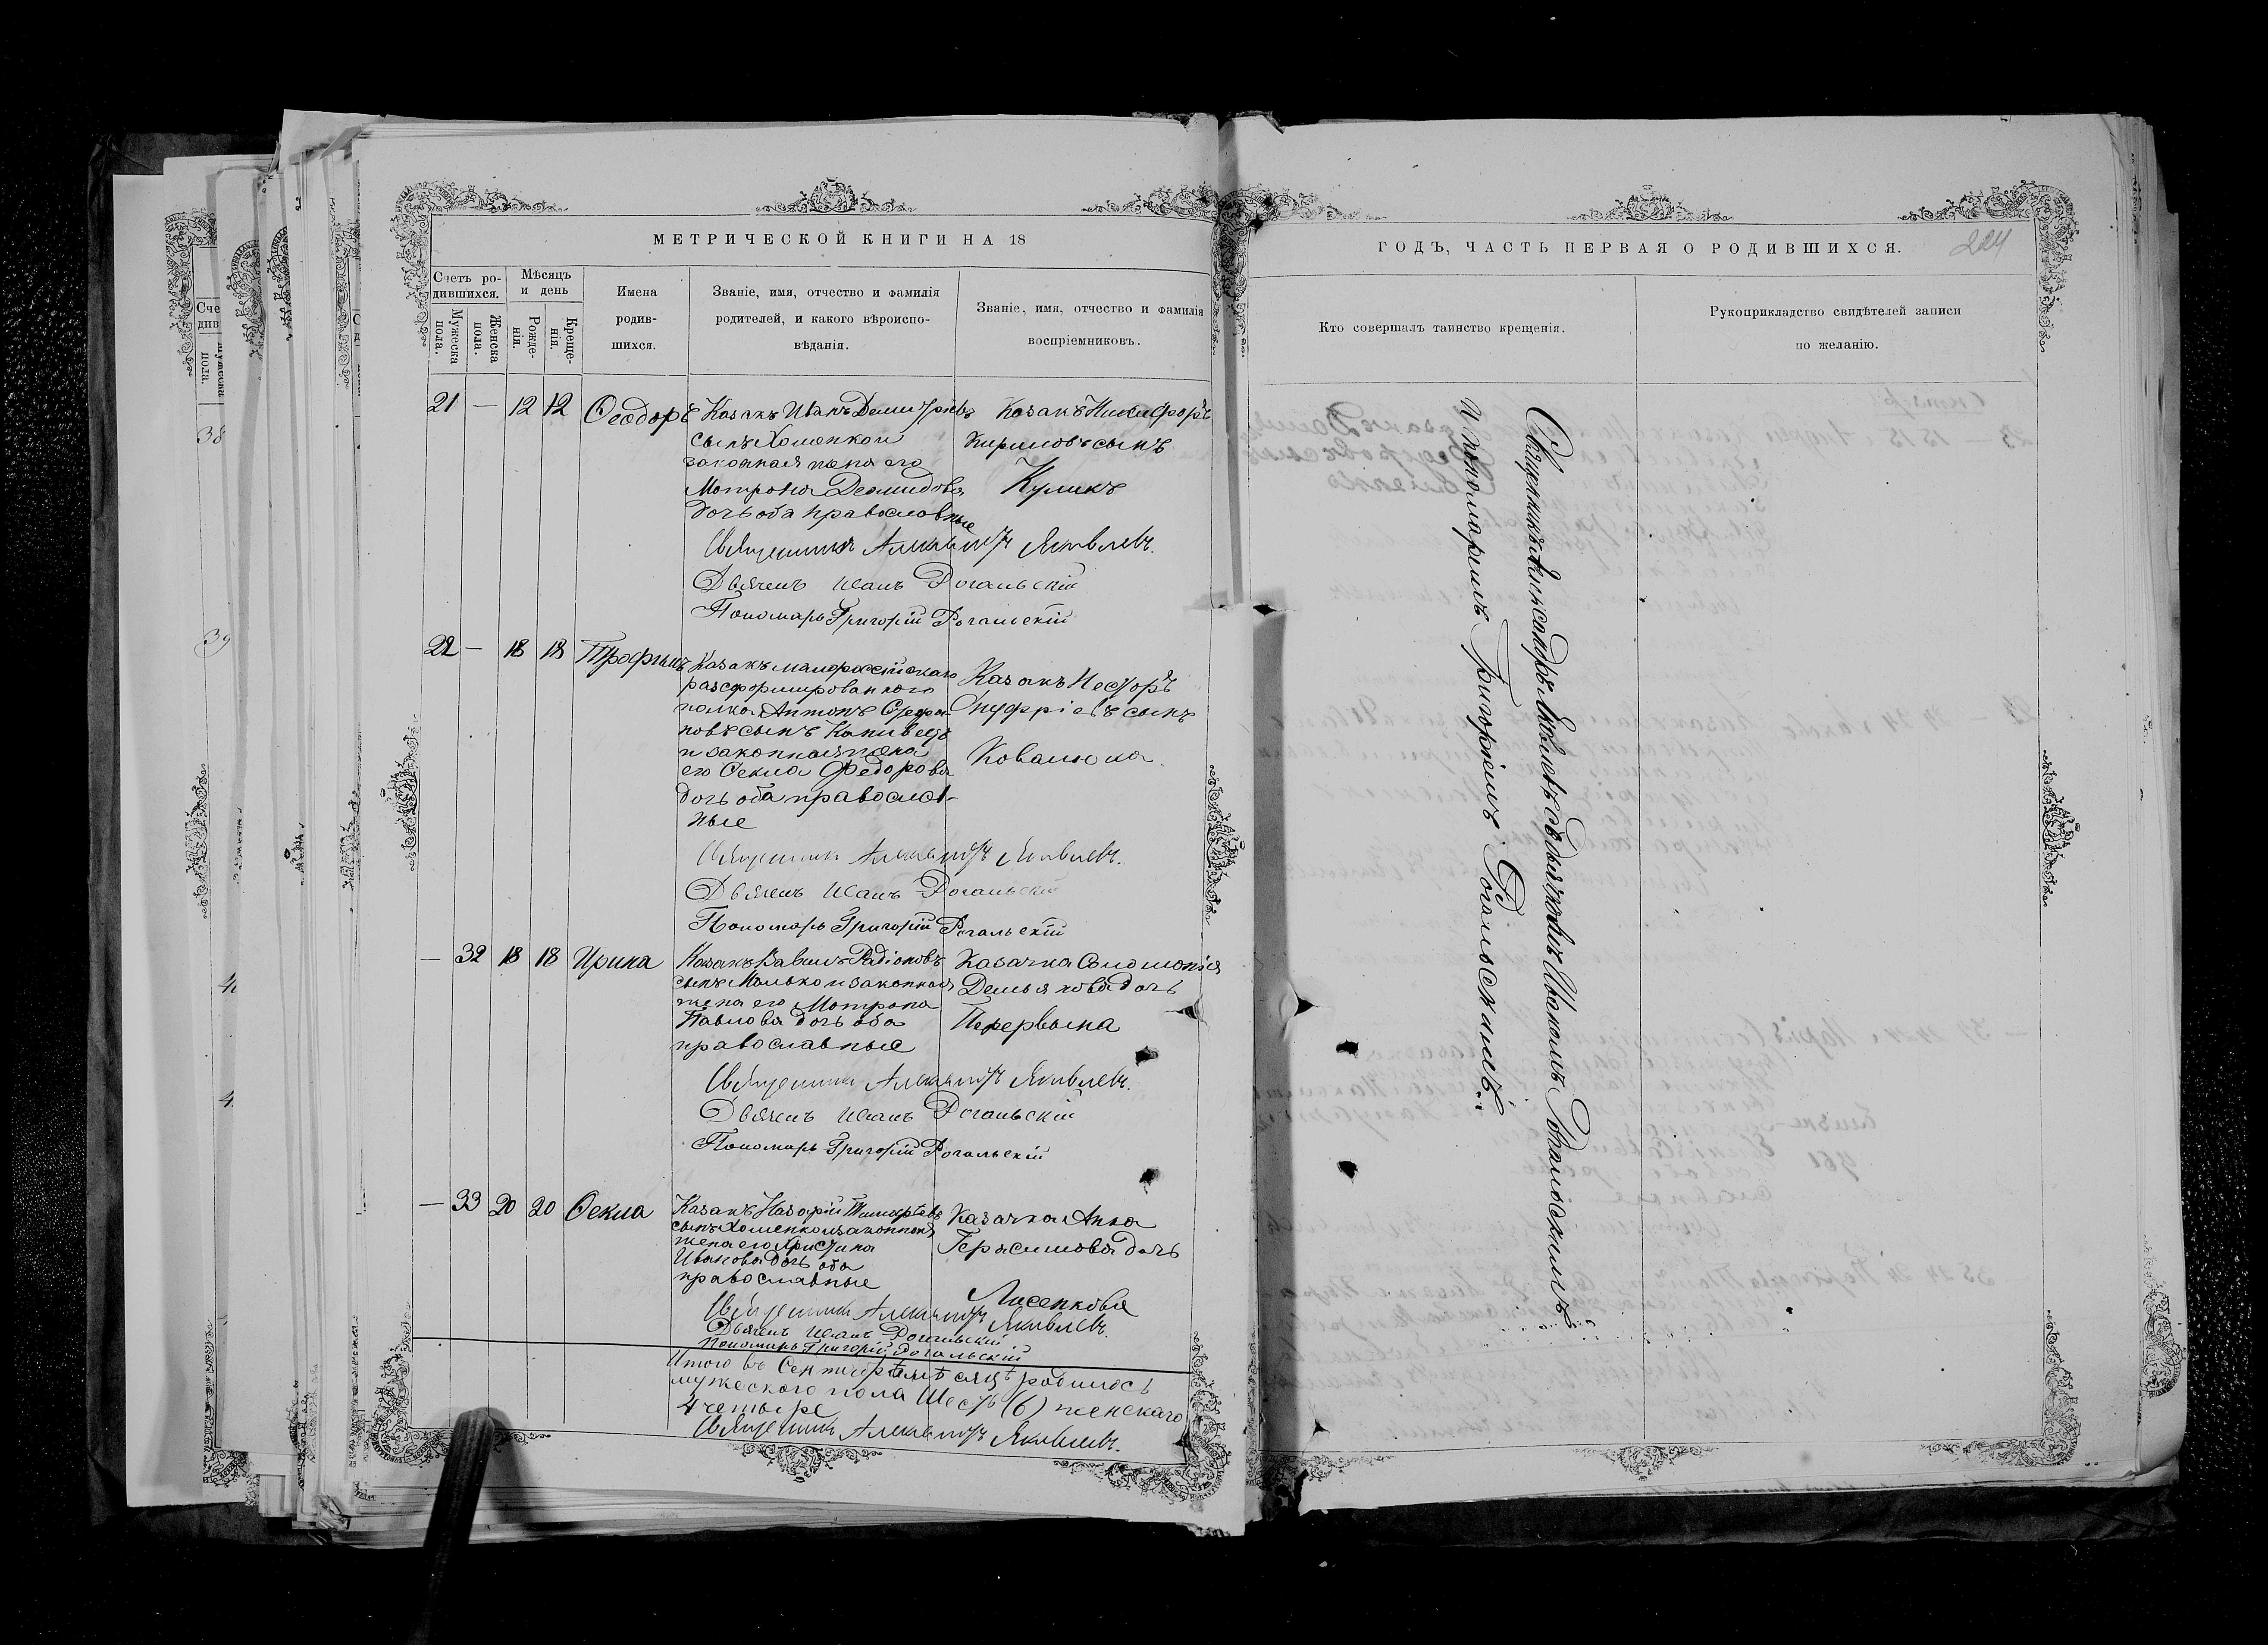 МЕТРИЧЕСКОЙ КНИГИ НА 18
Счетъ ро-
дившихся.
Мѣсяцъ
и день
Имена
родив-
шихся.
Званіе, имя, отчество и фамилія
родителей, и какого вѣроиспо-
вѣданія.
Званіе, имя, отчество и фамилія
воспріемниковъ.
Мужеска
пола.
Женска
пола.
Рожде-
нія.
Креще-
нія.
21 — 12 12 Ѳеодоръ
Казакъ Иванъ Димитріевъ
сынъ Хоменко и
законная жена его
Матрона Демидова
дочь оба православные
Казакъ Никифоръ
Кириловъ сынъ
Куликъ
Священникъ Александръ Яковлевъ.
Дьячекъ Иванъ Рогальскій
Пономарь Григорій Рогальскій
22 — 18 18 Трофимъ
Казакъ малороссійскаго
разсформированного
полка Антонъ Стефа-
новъ сынъ
и законная жена
его Ѳекла Федорова
дочь оба православ-
ные
Казакъ Несторъ
Онуфріевъ сынъ
Ковалюка
Священникъ Александръ Яковлевъ.
Дьячекъ Иванъ Рогальскій
Пономарь Григорій Рогальскій
— 32 18 18 Ирина
Казакъ Вавилъ Радіоновъ
сынъ Малько и законная
жена его Матрона
Павлова дочь оба
православные
Казачка Соломонія
Демьянова дочь
Перервына
Священникъ Александръ Яковлевъ.
Дьячекъ Иванъ Рогальскій
Пономарь Григорій Рогальскій
— 33 20 20 Ѳекла
Казакъ Назарій Тимофеевъ
сынъ Хоменко и законная
жена его Христина
Иванова дочь оба
православные
Казачка Анна
Герасимова дочь
Лисенкова
Священникъ Александръ Яковлевъ.
Дьячекъ Иванъ Рогальскій
Пономарь Григорій Рогальскій
Итого въ Сентябрѣ мѣсяцѣ родилось
мужескаго пола шесть (6) женскаго
4 четыре
Священникъ Александръ Яковлевъ.
ГОДЪ, ЧАСТЬ ПЕРВАЯ О РОДИВШИХСЯ.
224
Кто совершалъ таинство крещенія.
Рукоприкладство свидѣтелей записи
по желанію.
Священникъ Александръ Яковлевъ съ дьячкомъ Иваномъ Рогальскимъ
и пономаремъ Григоріемъ Рогальскимъ.
Сче
див
пола.
38
39